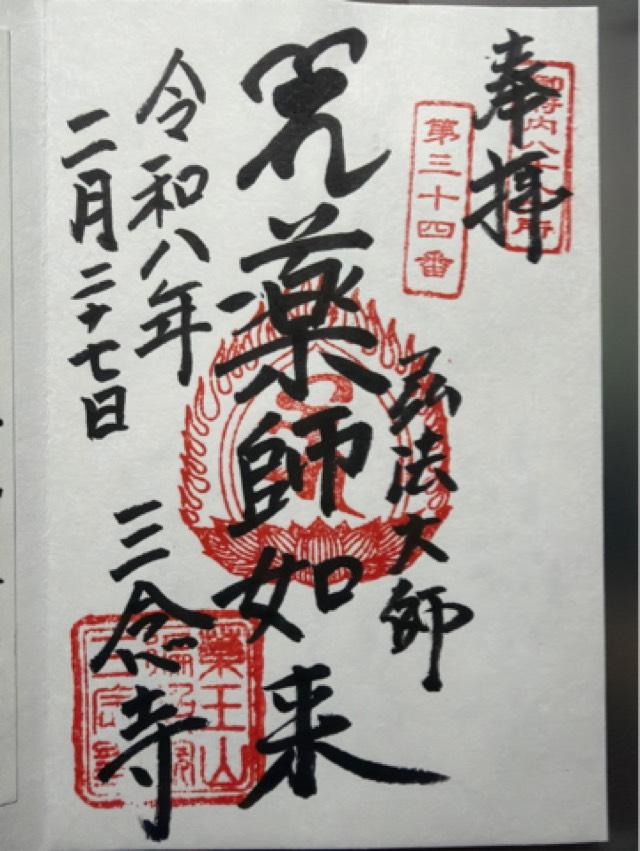 奉拝
御府内八十
所
第三十四番
弘法大師
薬師如来
令和八年
二月二十七日
三念寺
薬王山